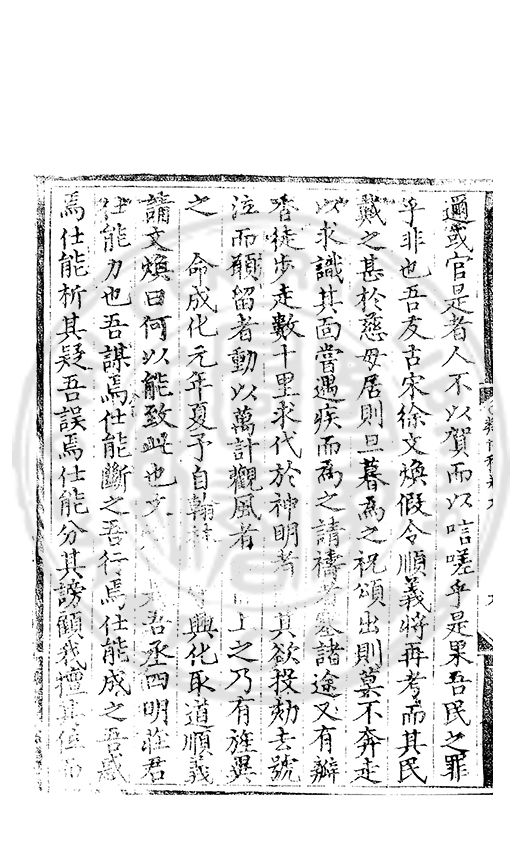 邇或官是者人不以賀而以唁嗟乎是果吾民之罪
乎非也吾友古宋徐文煥假令順義將再考而其民
戴之甚於慈母居則旦暮為之祝頌出則莫不奔走
以求識其面嘗遇疾而為之請禱者塞諸途又有瓣
香徒步走數十里求代於神明者 其欲投劾去號
泣而願留者動以萬計觀風者 上之乃有旌異
之 命成化元年夏予自翰林 興化取道順義
謂文煥曰何以能致此也文 吾丞四明莊君
仕能力也吾謀焉仕能斷之吾行焉仕能成之吾惑
焉仕能析其疑吾誤焉仕能分其謗顧我擅其位而